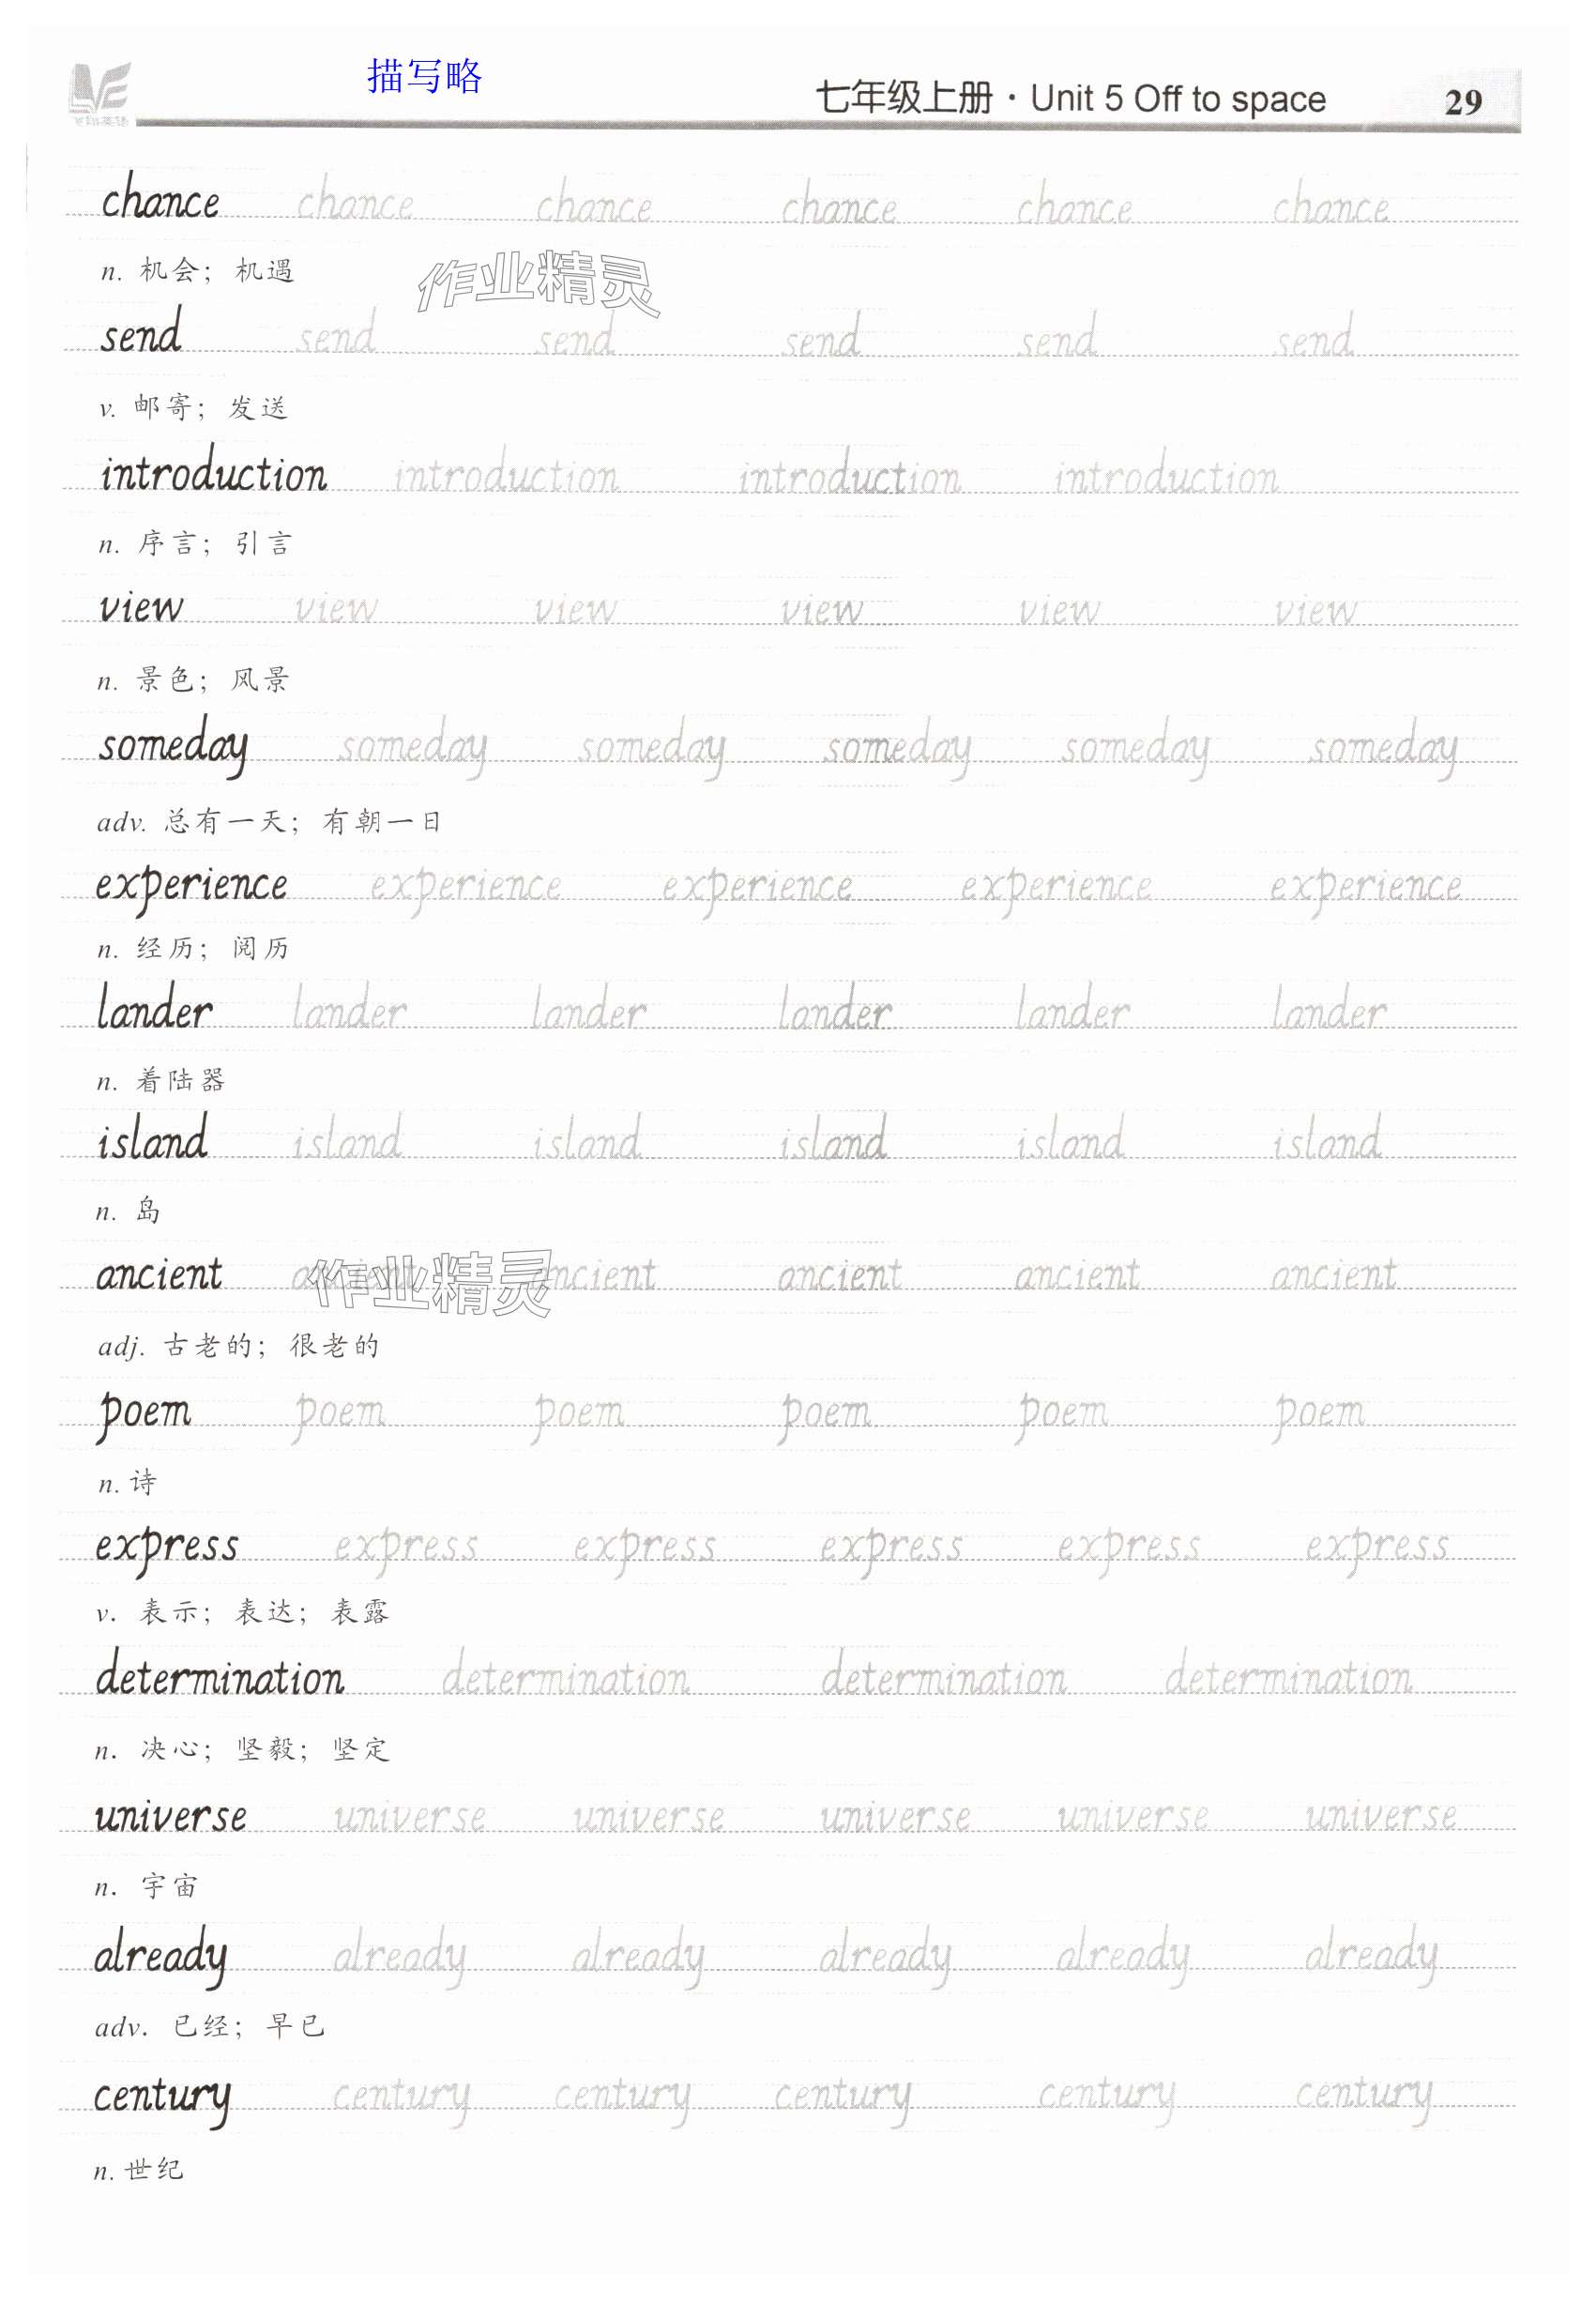 描写略
七年级上册·Unit 5 Off to space 29
chance chance chance chance chance chance
n. 机会；机遇
作业精灵
send send send send send send
v. 邮寄；发送
introduction introduction introduction introduction
n. 序言；引言
view view view view view view
n. 景色；风景
someday someday someday someday someday someday
adv. 总有一天；有朝一日
experience experience experience experience experience
n. 经历；阅历
lander lander lander lander lander lander
n. 着陆器
island island island island island island
n. 岛
ancient ancient ancient ancient ancient ancient
作业精灵
adj. 古老的；很老的
poem poem poem poem poem poem
n. 诗
express express express express express express
v. 表示；表达；表露
determination determination determination determination
n. 决心；坚毅；坚定
universe universe universe universe universe universe
n. 宇宙
already already already already already already
adv. 已经；早已
century century century century century century
n. 世纪